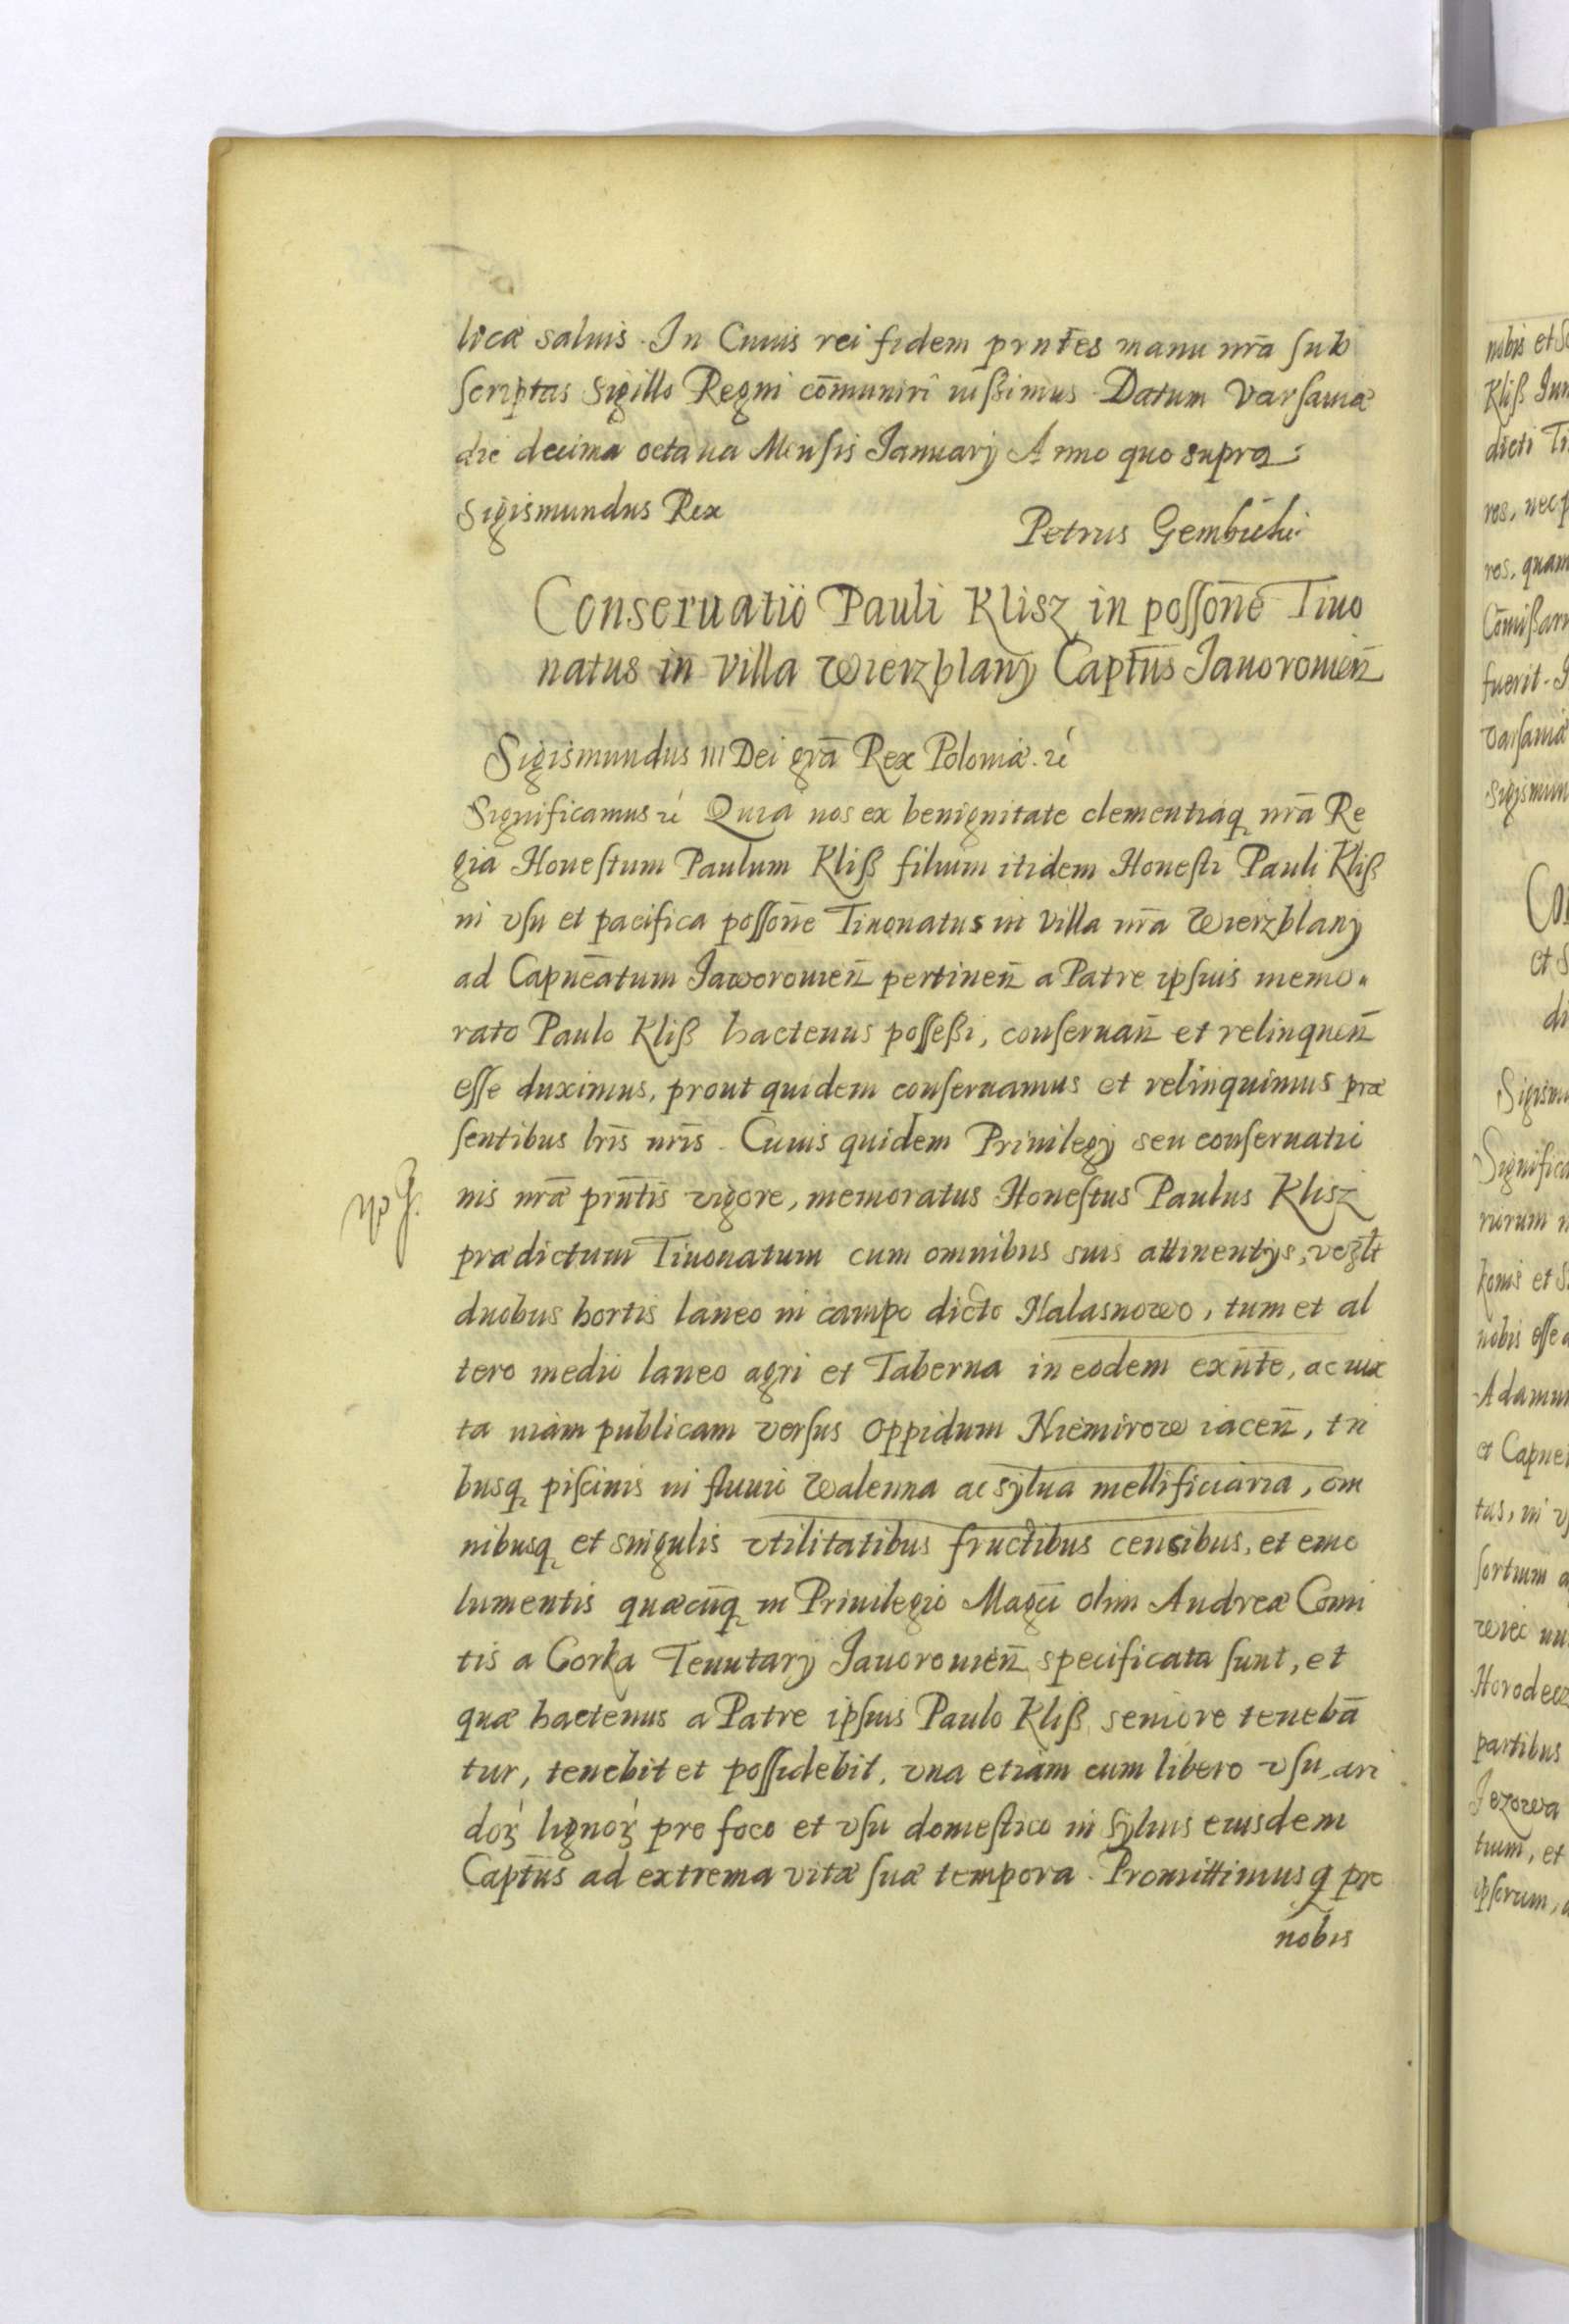 licæ saluis. In Cuius rei fidem prntes manu nrā sub
scriptas Sigillo Regni cōmuniri iussimus. Datum Varsauiæ
die decima octaua Mensis Ianuarij Anno quo supra:
Sigismundus Rex
Petrus Gembicki
Conseruatio Pauli Klisz in possōne Tiuo
natus in villa Wierzblany Capt̄us Iauorouien̄
Sigismundus III Dei grā Rex Poloniæ. rc
Significamus rc Quia nos ex benignitate clementiaq nrā Re
gia Honestum Paulum Kliß filium itidem Honesti Pauli Kliß
in vsu et pacifica possōne Tiuonatus in villa nrā Wierzblany
ad Capneātum Jaworouien̄ pertinen̄ a Patre ipsius memo
rato Paulo Kliß hactenus possessi, conseruan̄ et relinquen̄
esse duximus, prout quidem conseruamus et relinquimus præ
sentibus lrīs nrīs. Cuius quidem Priuilegij seu conseruatio
nis nræ prn̄tis vigore, memoratus Honestus Paulus Klisz
prædictum Tiuonatum cum omnibus suis attinentijs, vezlt
duobus hortis laneo in campo dicto Halasnowo, tum et al
tero medio laneo agri et Taberna in eodem exn̄te, ac iux
ta uiam publicam versus oppidum Niemirow iacen̄, tri
busq piscinis in fluuio Walenna ac sylua mellificiaria, om
nibusq et singulis vtilitatibus fructibus censibus, et emo
lumentis quæcūq in Priuilegio Magci olim Andreæ Comi
tis a Gorka Tenutarij Jauorouien̄ specificata sunt, et
quæ hactenus a Patre ipsius Paulo Kliß seniore tenebā
tur, tenebit et possidebit, vna etiam cum libero vsu ari
doꝝ lignoꝝ pro foco et vsu domestico in syluis eiusdem
Capt̄us ad extrema vitæ suæ tempora. Promittimusq pro
nobis